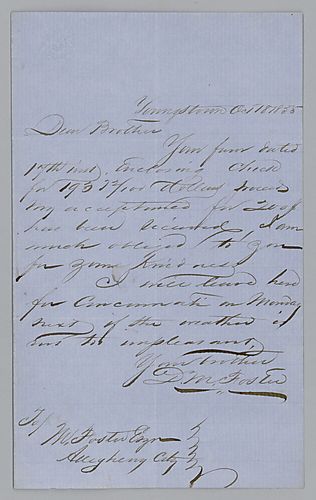 Youngstown Oct 18 1855
Dear Brother
Your favor dated
17th inst. Enclosing Check
for 193 /100 Dollars
my acceptance for
has been received, I am
much obliged to you
for your kindness
I will leave here
for Cincinnati on Monday
next if the weather is
not to unpleasant
Your brother
D. M. Foster
To
W. Foster Esqr
Allegheny City